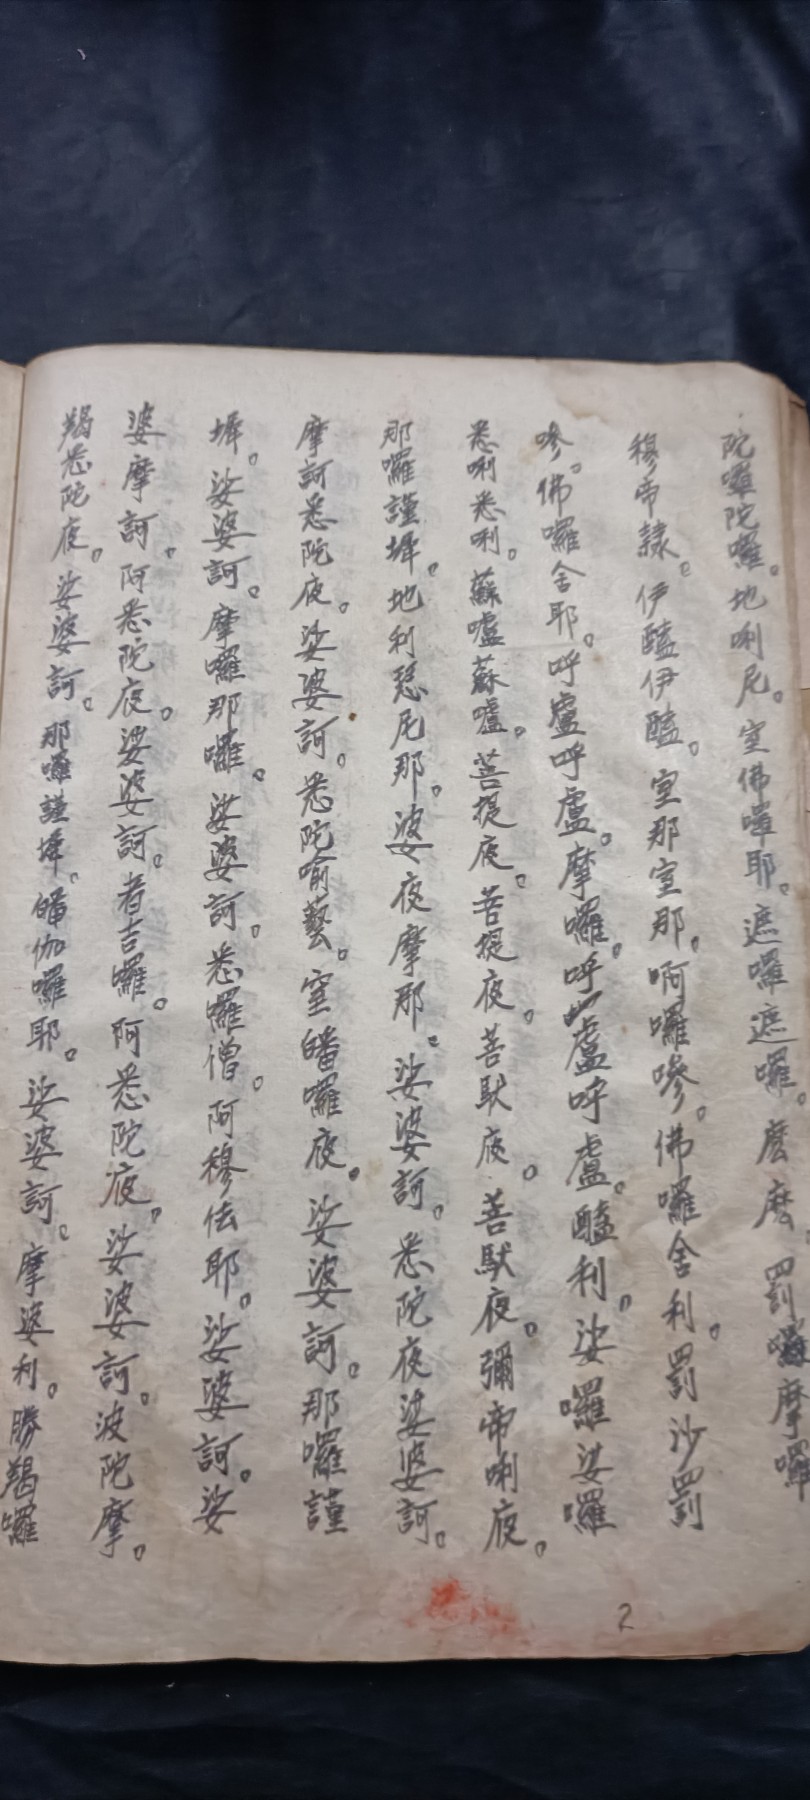 陀囉陀囉。地唎尼。室佛囉耶。遮囉遮囉。麽麽。罰囉摩囉
穆帝隸。伊醯伊醯。室那室那。啊囉嘇。佛囉舍利。罰沙罰
嘇。佛囉舍耶。呼盧呼盧。摩囉。呼盧呼盧。醯利。娑囉娑囉
悉唎悉唎。蘇嚧蘇嚧。菩提夜。菩提夜。菩馱夜。菩馱夜。彌帝唎夜。
那囉謹墀。地利瑟尼那。婆夜摩那。娑婆訶。悉陀夜娑婆訶。
摩訶悉陀夜。娑婆訶。悉陀喻藝。室皤囉夜。娑婆訶。那囉謹
墀。娑婆訶。摩囉那囉。娑婆訶。悉囉僧。阿穆佉耶。娑婆訶。娑
婆摩訶。阿悉陀夜。娑婆訶。者吉囉。阿悉陀夜。娑婆訶。波陀摩。
羯悉陀夜。娑婆訶。那囉謹墀。皤伽囉耶。娑婆訶。摩婆利。勝羯囉
2